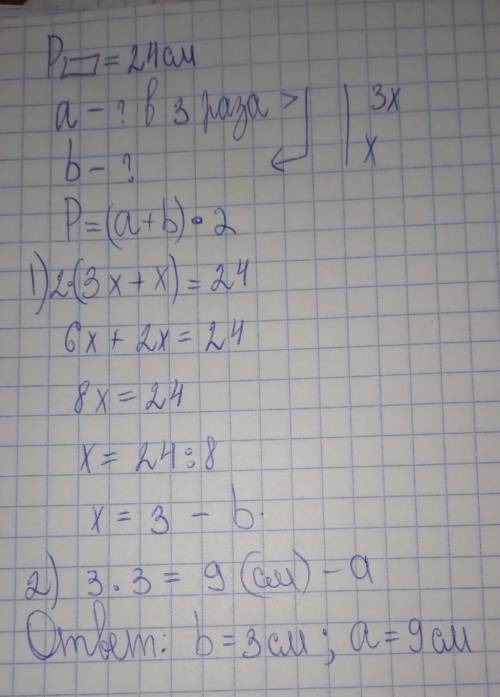 P▱ = 24 см
a - ? в 3 раза > | 3x
b - ? | x
P = (a + b) · 2
1) 2·(3x + x) = 24
6x + 2x = 24
8x = 24
x = 24 : 8
x = 3 - b.
2) 3 · 3 = 9 (см) - a
Ответ: b = 3 см ; a = 9 см